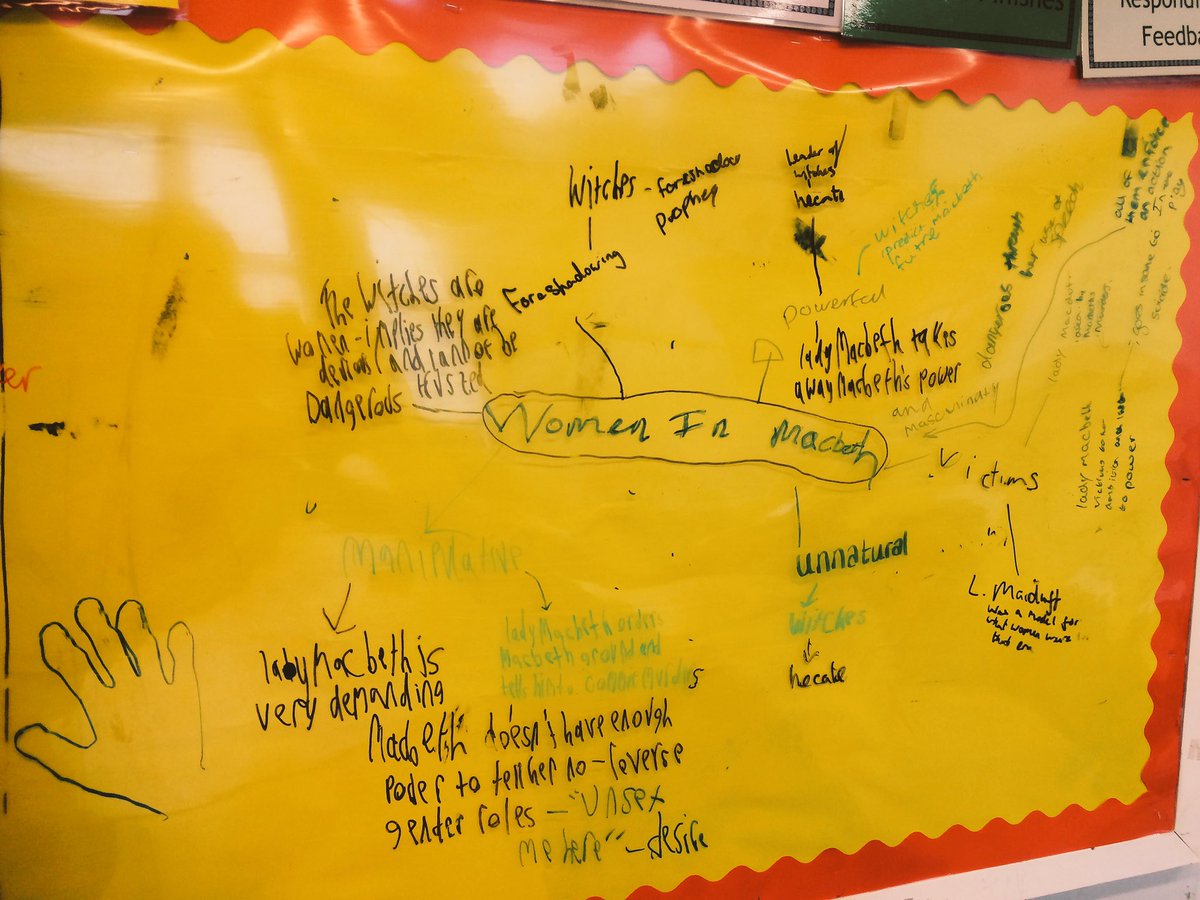 Feedba
Witches - foreshadow
prophey
Foreshadowing
Leader of
witches
hecate
Witches
predict macbeth
futre
powerful
lady Macbeth takes
away Macbeth's power
and
masculinaty
The Witches are
women - implies they are
devious / and cannot be
Dangerous trusted
Women In Macbeth
dangerous through
her use of
speech
all of
them enforce
an action
In the
play
goes insane
lady macbeth
to power
Victims
L. Macduff
was a model for
what women were
that era
unnatural
Witches
hecate
manipulative
lady Macbeth is
very demanding
lady Macbeth orders
Macbeth around and
tells him to
Macbeth doesn't have enough
to tell her no - reverse
gender roles - "Unsex
me here" - desire
er